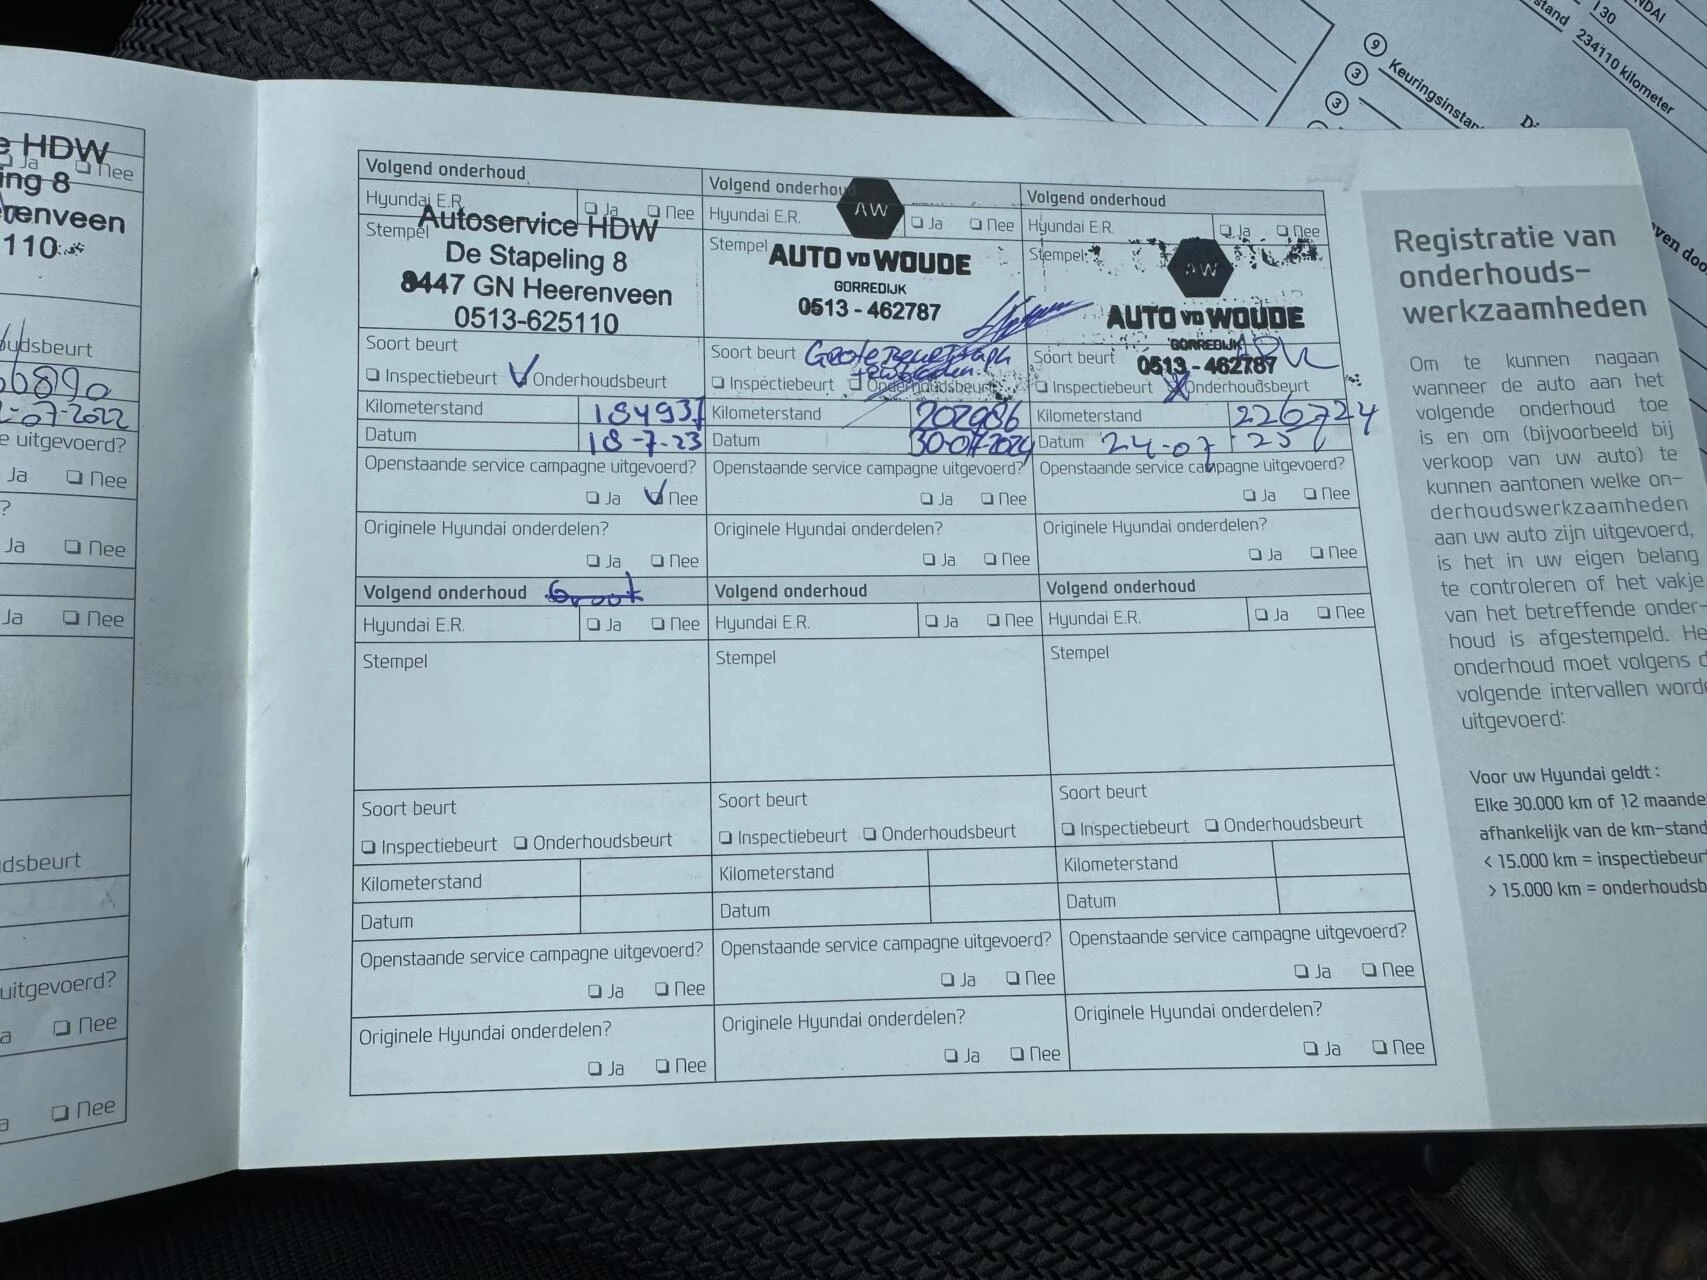 HDW
Ja Nee
ing 8
renveen
110
oudsbeurt
2-07-2022
e uitgevoerd?
Ja Nee
?
Ja Nee
Ja Nee
dsbeurt
uitgevoerd?
a Nee
a Nee
Volgend onderhoud
Hyundai E.R. Ja Nee
Stempel
Autoservice HDW
De Stapeling 8
8447 GN Heerenveen
0513-625110
Soort beurt
Inspectiebeurt Onderhoudsbeurt
Kilometerstand 184937
Datum 18-7-23
Openstaande service campagne uitgevoerd?
Ja Nee
Originele Hyundai onderdelen?
Ja Nee
Volgend onderhoud Groot
Hyundai E.R. Ja Nee
Stempel
Soort beurt
Inspectiebeurt Onderhoudsbeurt
Kilometerstand
Datum
Openstaande service campagne uitgevoerd?
Ja Nee
Originele Hyundai onderdelen?
Ja Nee
Volgend onderhoud
AW
Hyundai E.R. Ja Nee
Stempel
AUTO VD WOUDE
GORREDIJK
0513 - 462787
Soort beurt Grote
Inspectiebeurt Onderhoudsbeurt
Kilometerstand 202986
Datum 30-07-2024
Openstaande service campagne uitgevoerd?
Ja Nee
Originele Hyundai onderdelen?
Ja Nee
Volgend onderhoud
Hyundai E.R. Ja Nee
Stempel
Soort beurt
Inspectiebeurt Onderhoudsbeurt
Kilometerstand
Datum
Openstaande service campagne uitgevoerd?
Ja Nee
Originele Hyundai onderdelen?
Ja Nee
Volgend onderhoud
Hyundai E.R. Ja Nee
Stempel
AW
AUTO VD WOUDE
GORREDIJK
0513 - 462787
Soort beurt
Inspectiebeurt Onderhoudsbeurt
Kilometerstand 226724
Datum 24-07 25
Openstaande service campagne uitgevoerd?
Ja Nee
Originele Hyundai onderdelen?
Ja Nee
Volgend onderhoud
Hyundai E.R. Ja Nee
Stempel
Soort beurt
Inspectiebeurt Onderhoudsbeurt
Kilometerstand
Datum
Openstaande service campagne uitgevoerd?
Ja Nee
Originele Hyundai onderdelen?
Ja Nee
Registratie van
onderhouds-
werkzaamheden
Om te kunnen nagaan
wanneer de auto aan het
volgende onderhoud toe
is en om (bijvoorbeeld bij
verkoop van uw auto) te
kunnen aantonen welke on-
derhoudswerkzaamheden
aan uw auto zijn uitgevoerd,
is het in uw eigen belang
te controleren of het vakje
van het betreffende onder-
houd is afgestempeld. He
onderhoud moet volgens d
volgende intervallen worde
uitgevoerd:
Voor uw Hyundai geldt :
Elke 30.000 km of 12 maande
afhankelijk van de km-stand
< 15.000 km = inspectiebeurt
> 15.000 km = onderhoudsb
NDAI
I 30
stand 234110 kilometer
9 Keuringsinstan
3
3
Di
ven doo